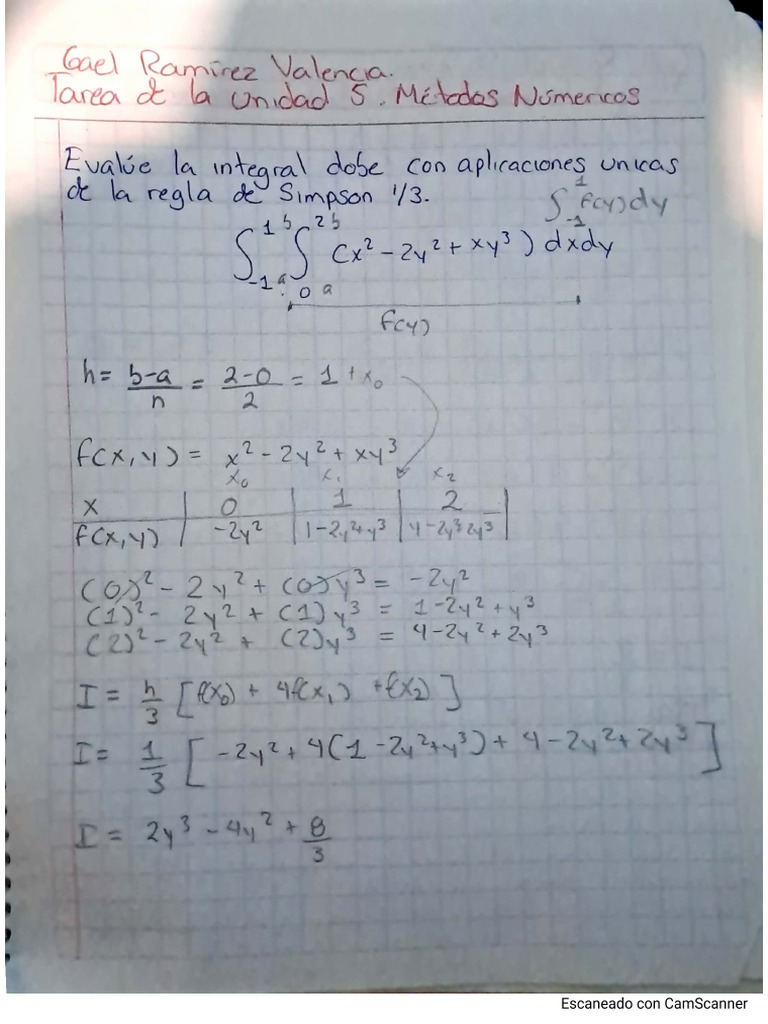 Gael Ramírez Valencia.
Tarea de la Unidad 5. Métodos Númericos
Evalúe la integral dobe con aplicaciones unicas
de la regla de Simpson 1/3. ∫₋₁¹ f(y)dy
∫₋₁ₐ¹ᵇ ∫₀ₐ²ᵇ (x² - 2y² + xy³) dxdy
f(y)
h = b-a/n = 2-0/2 = 1 + x₀
f(x,y) = x² - 2y² + xy³
x₀ x₁ x₂
x | 0 | 1 | 2
f(x,y) | -2y² | 1-2y²+y³ | 4-2y²2y³
(0)² - 2y² + (0)y³ = -2y²
(1)² - 2y² + (1)y³ = 1-2y²+y³
(2)² - 2y² + (2)y³ = 4-2y²+2y³
I = h/3 [f(x₀) + 4f(x₁) + f(x₂)]
I = 1/3 [-2y² + 4(1-2y²+y³) + 4-2y²+2y³]
I = 2y³ - 4y² + 8/3
Escaneado con CamScanner